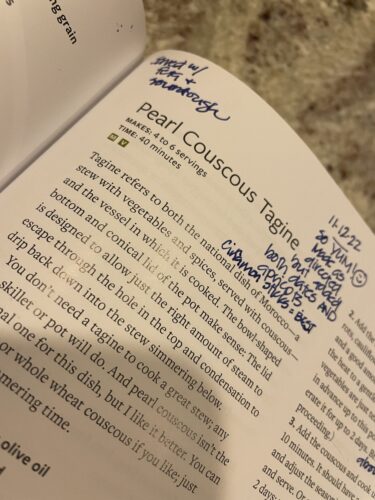 ng grain
w/
+
sourdough
Pearl Couscous Tagine
MAKES: 4 to 6 servings
TIME: 40 minutes
M V
Tagine refers to both the national dish of Morocco—a
stew with vegetables and spices, served with couscous—
and the vessel in which it is cooked. The bowl-shaped
bottom and conical lid of the pot make sense: The lid
is designed to allow just the right amount of steam to
escape through the hole in the top and condensation to
drip back down into the stew simmering below.
You don't need a tagine to cook a great stew; any
skillet or pot will do. And pearl couscous isn't the
al one for this dish, but I like it better. You can
or whole wheat couscous if you like; just
mering time.
olive oil
11-12-22
so YUM☺
made as
directed
but added
both dates AND
cinnamon sticks = BEST
2. Add the
and a good
the heat to a
vegetables are just
in advance up to this
erate it for up to 2 days.
proceeding.)
3. Add the couscous and cook
10 minutes. It should have
and adjust the
and serve. Or
2 days